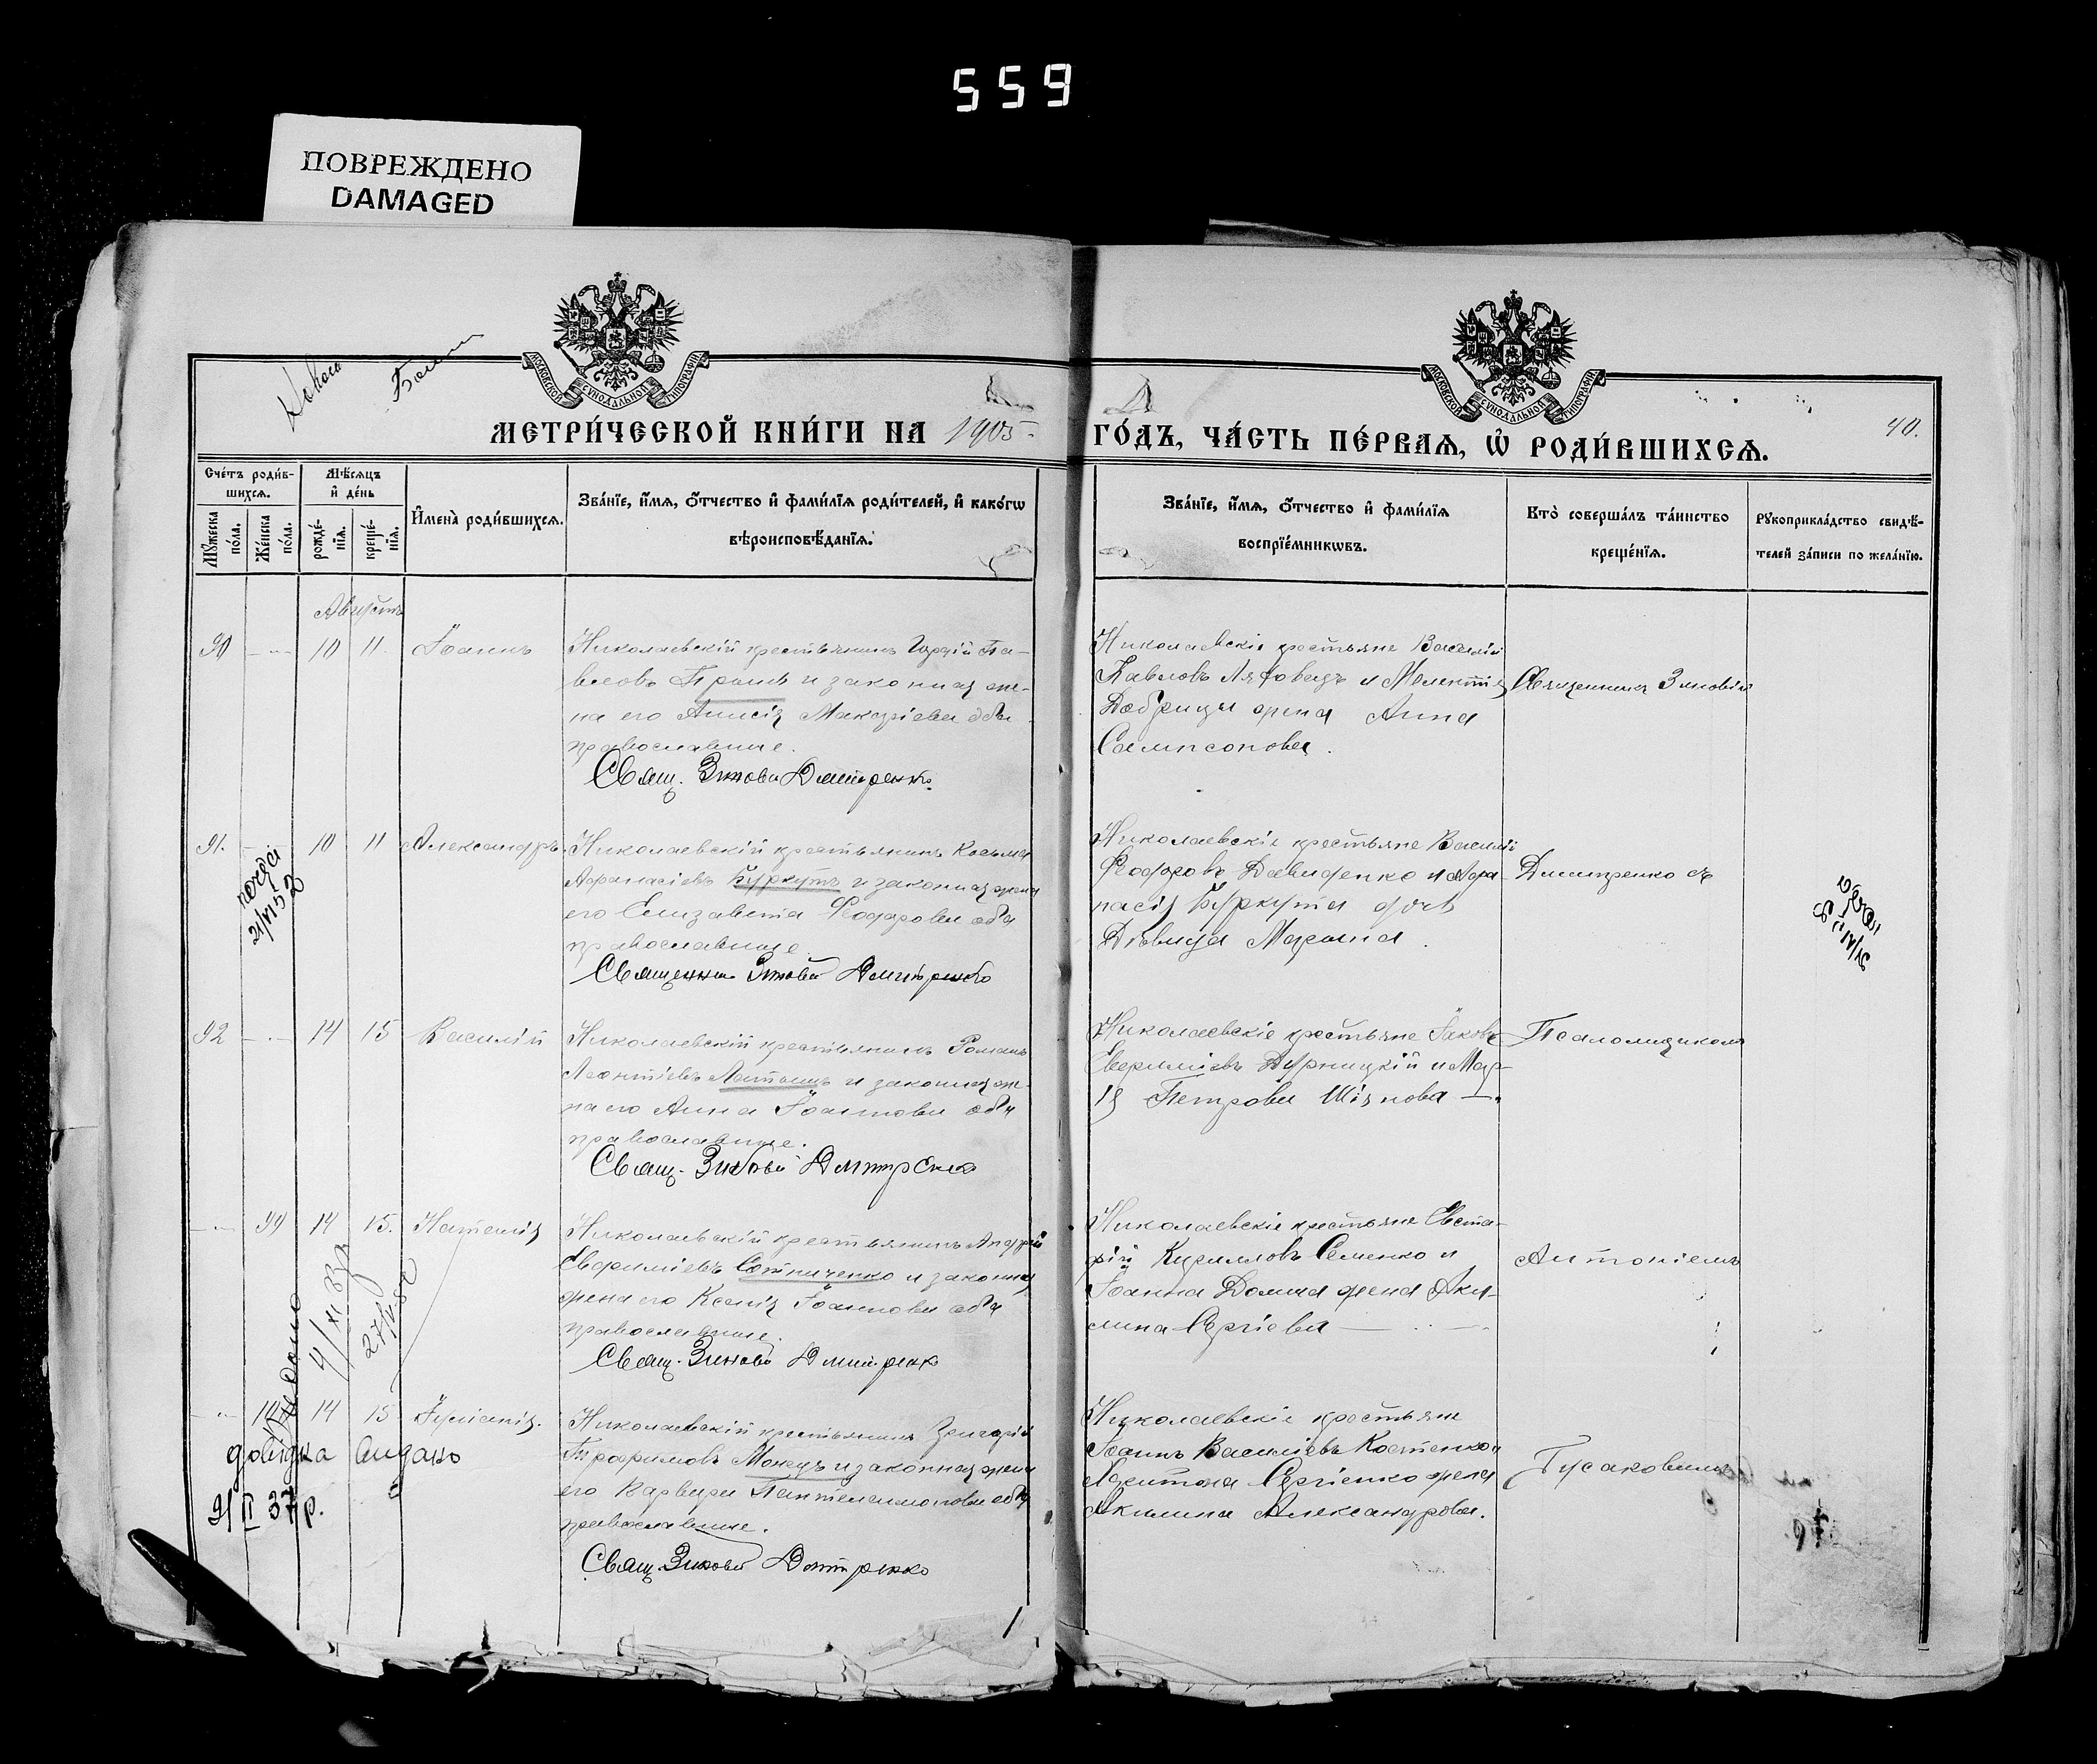 559
ПОВРЕЖДЕНО
DAMAGED
МОСКОВСКОЙ СѴНОДАЛЬНОЙ ТИПОГРАФІИ
МОСКОВСКОЙ СѴНОДАЛЬНОЙ ТИПОГРАФІИ
МЕТРИ́ЧЕСКОЙ КНИ́ГИ НА 1905 ГО́ДЪ, ЧА́СТЬ ПЕ́РВАЯ, Ѡ҆ РОДИ́ВШИХСЯ.
40.
Сче́тъ роди́в-
шихся.
Мꙋ́жеска по́ла.
Же́нска по́ла.
Мѣ́сяцъ
и҆ де́нь
рожде́-
нїя.
креще́-
нїя.
И҆мена̀ роди́вшихся.
Зва́нїе, и҆́мя, ѻ҆́тчество и҆ фами́лїя роди́телей, и҆ како́гѡ
вѣроисповѣ́данїя.
Зва́нїе, и҆́мя, ѻ҆́тчество и҆ фами́лїя
воспрїе́мникѡвъ.
Кто̀ соверша́лъ та́инство
креще́нїя.
Рꙋкоприкла́дство свидѣ́-
телей за́писи по жела́нїю.
Августъ
90 10 11 Іоаннъ
Николаевскій крестьянинъ
Павловъ и законная же-
на его Анисія Макаріева оба
православные.
Свящ. Зиновій Дмитренко
Николаевскіе крестьяне Василій
Павловъ и
Добрицы жена Анна
Сампсонова.
Священникъ Зиновій
91. 10 11 Александръ
Николаевскій крестьянинъ Косьма
Афанасіевъ Буркутъ и законная жена
его Елизавета Ѳеодорова оба
православные.
Священник Зиновій Дмитренко
Николаевскіе крестьяне Василій
Ѳеодоровъ Давиденко и Афа-
насія Буркута дочь
Дѣвица Марина.
Дмитренко съ
21/VI 52
92 14 15 Василій
Николаевскій крестьянинъ Романъ
Леонтіевъ и законная же-
на его Анна Іоаннова оба
православные.
Свящ. Зиновій Дмитренко
Николаевскіе крестьяне Іаковъ
Евфиміевъ и Мар-
ія Петрова
Псаломщикомъ
99 14 15. Наталія
Николаевскій крестьянинъ Андрей
Евфиміевъ Сотниченко и законная
жена его Ксенія Іоаннова оба
православные.
Свящ. Зиновій Дмитренко
Николаевскіе крестьяне Евста-
фій Кирилловъ Семенко и
Іоанна жена Аку-
лина Сергіева
Антоніемъ
14 15 Іуліанія.
довідка видано
9/II 37 р.
Николаевскій крестьянинъ Григорій
Трофимовъ и законная жена
его Варвара Пантелеимонова оба
православные.
Свящ. Зиновій Дмитренко
Николаевскіе крестьяне
Іоаннъ Василіевъ Костенко и
Харитона Сергіенко жена
Акилина Александрова.
Гусаковимъ